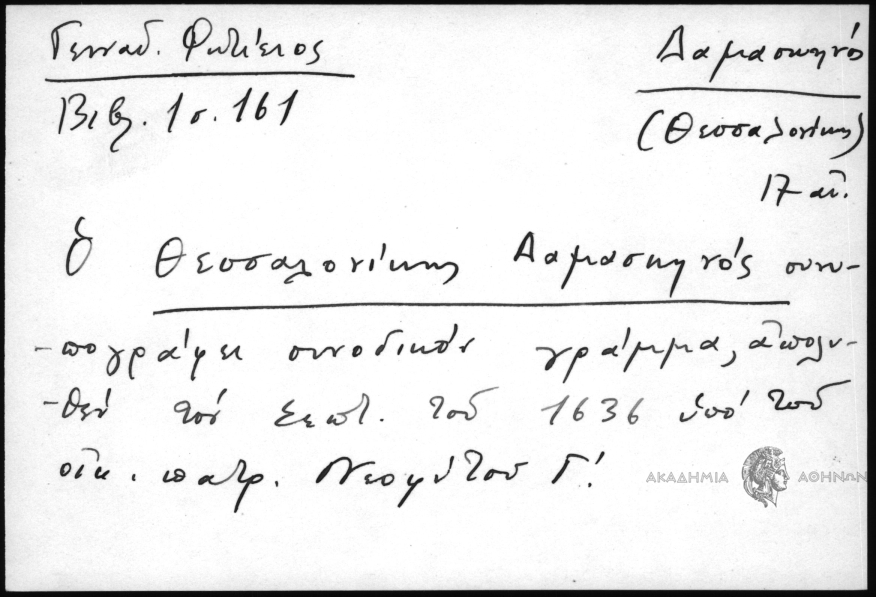 Γενναδ. Φωτίειος
Βιβλ. 1 σ. 161
Δαμασκηνός
(Θεσσαλονίκης)
17 αἰ.
Ὁ Θεσσαλονίκης Δαμασκηνός συνυ-
-πογράφει συνοδικόν γράμμα, ἀπολυ-
-θέν τόν Σεπτ. τοῦ 1636 ὑπό τοῦ
οἰκ. πατρ. Νεοφύτου Γ'.
ΑΚΑΔΗΜΙΑ ΑΘΗΝΩΝ